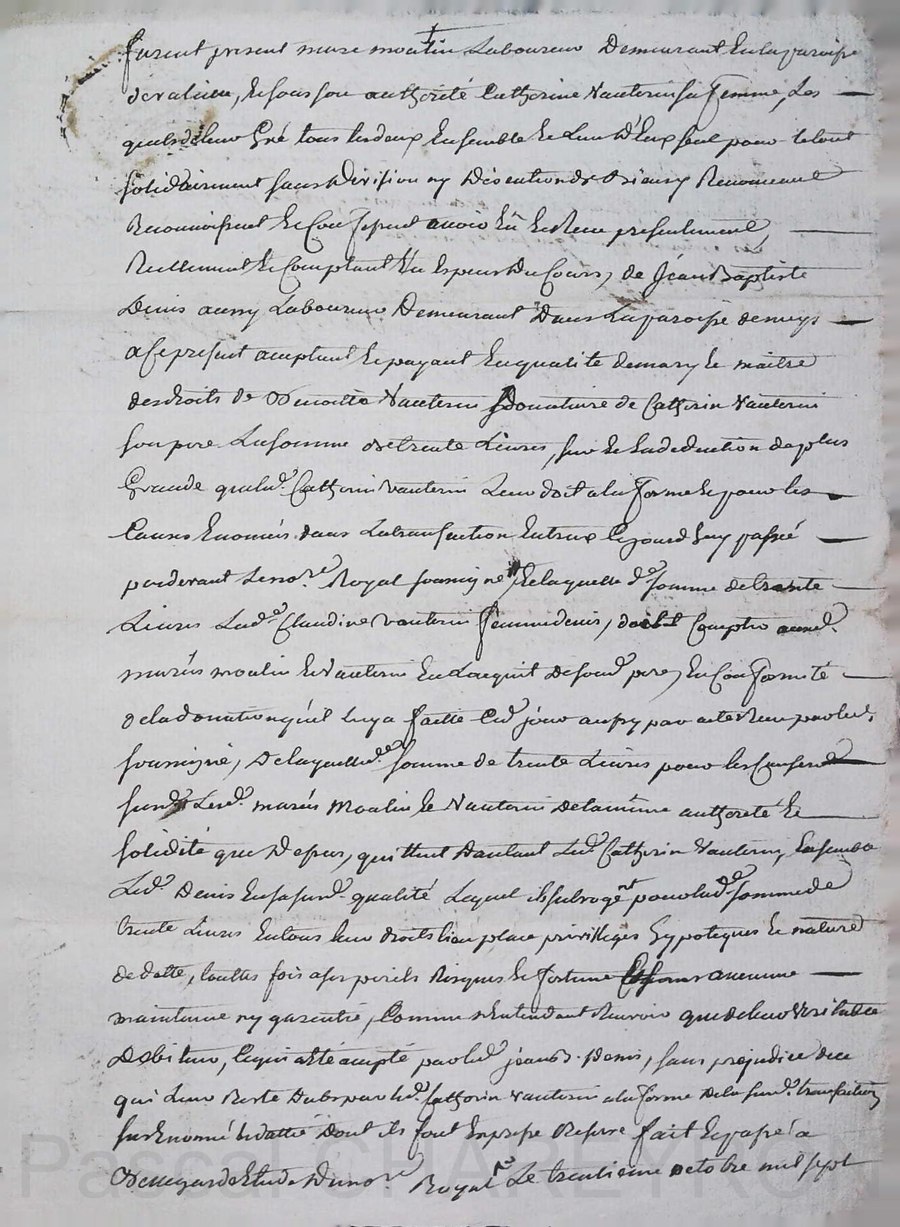 furent present mare moulin Laboureur Demeurant En la paroise
de valieu, Et sous son authorité Catherine Vauterin sa femme, Les
quels de leur Gré tous les deux Ensemble Et L'un D'Eux seul pour le tout
solidairement sans Division ny Discution de Biens y Renonceant
Reconnoissent Et Confessent avoir Eû Et Receu presentement,
Reellement Et Comptant En Especes Du Cours, de Jean Baptiste
Denis aussy Laboureur Demeurant Dans La paroisse de meys
a Se present acceptant Et payant En qualité de mary Et maitre
des droits de Vauterin Donataire de Catherin Vauterin
son pere La somme de trente Livres, sur Et En deduction de plus
Grande que led. Catherin Vauterin Leur doit a la forme Et pour les
Causes Enoncés dans La transaction Entreux Ce jourd'huy passé
pardevant Le nore. Royal soussigné Et laquelle de. somme de trente
Livres Lade. Claudine Vauterin femme denis, doibt Compter
mariés moulin Et Vauterin En L'acquit de sond. pere, En Conformité
de la donation qu'il luy a faitte Ced. jour aussy par acte Receu par led.
soussigné, De laquelle de. somme de trente Livres pour les Causes
sus des. Lesd. mariés Moulin Et Vauterin De la même authorité Et
solidité que Dessus, quittent D'autant Led. Catherin Vauterin, Ensemble
Led. Denis En sa susd. qualité Lequel ils subrogent pour lad. somme de
trente Livres En tous leur droits lieu place privilleges hypoteques Et nature
de dette, touttes fois a ses perils Risques Et fortune sans aucune
maintenue ny garentie, Comme n'Entendant Recevoir que de leur Veritable
Debiteur, Ce qui a Eté accepté par led. jean B. Denis, sans prejudice de ce
qui Leur Reste Dub par led. Catherin Vauterin a la forme De la susd. transaction
sus Enoncé Et dattée Dont ils font Expresse Reserve fait Et passé a
Etude Du nore. Royal Le trentieme octobre mil sept
Pascal CHAREYRON